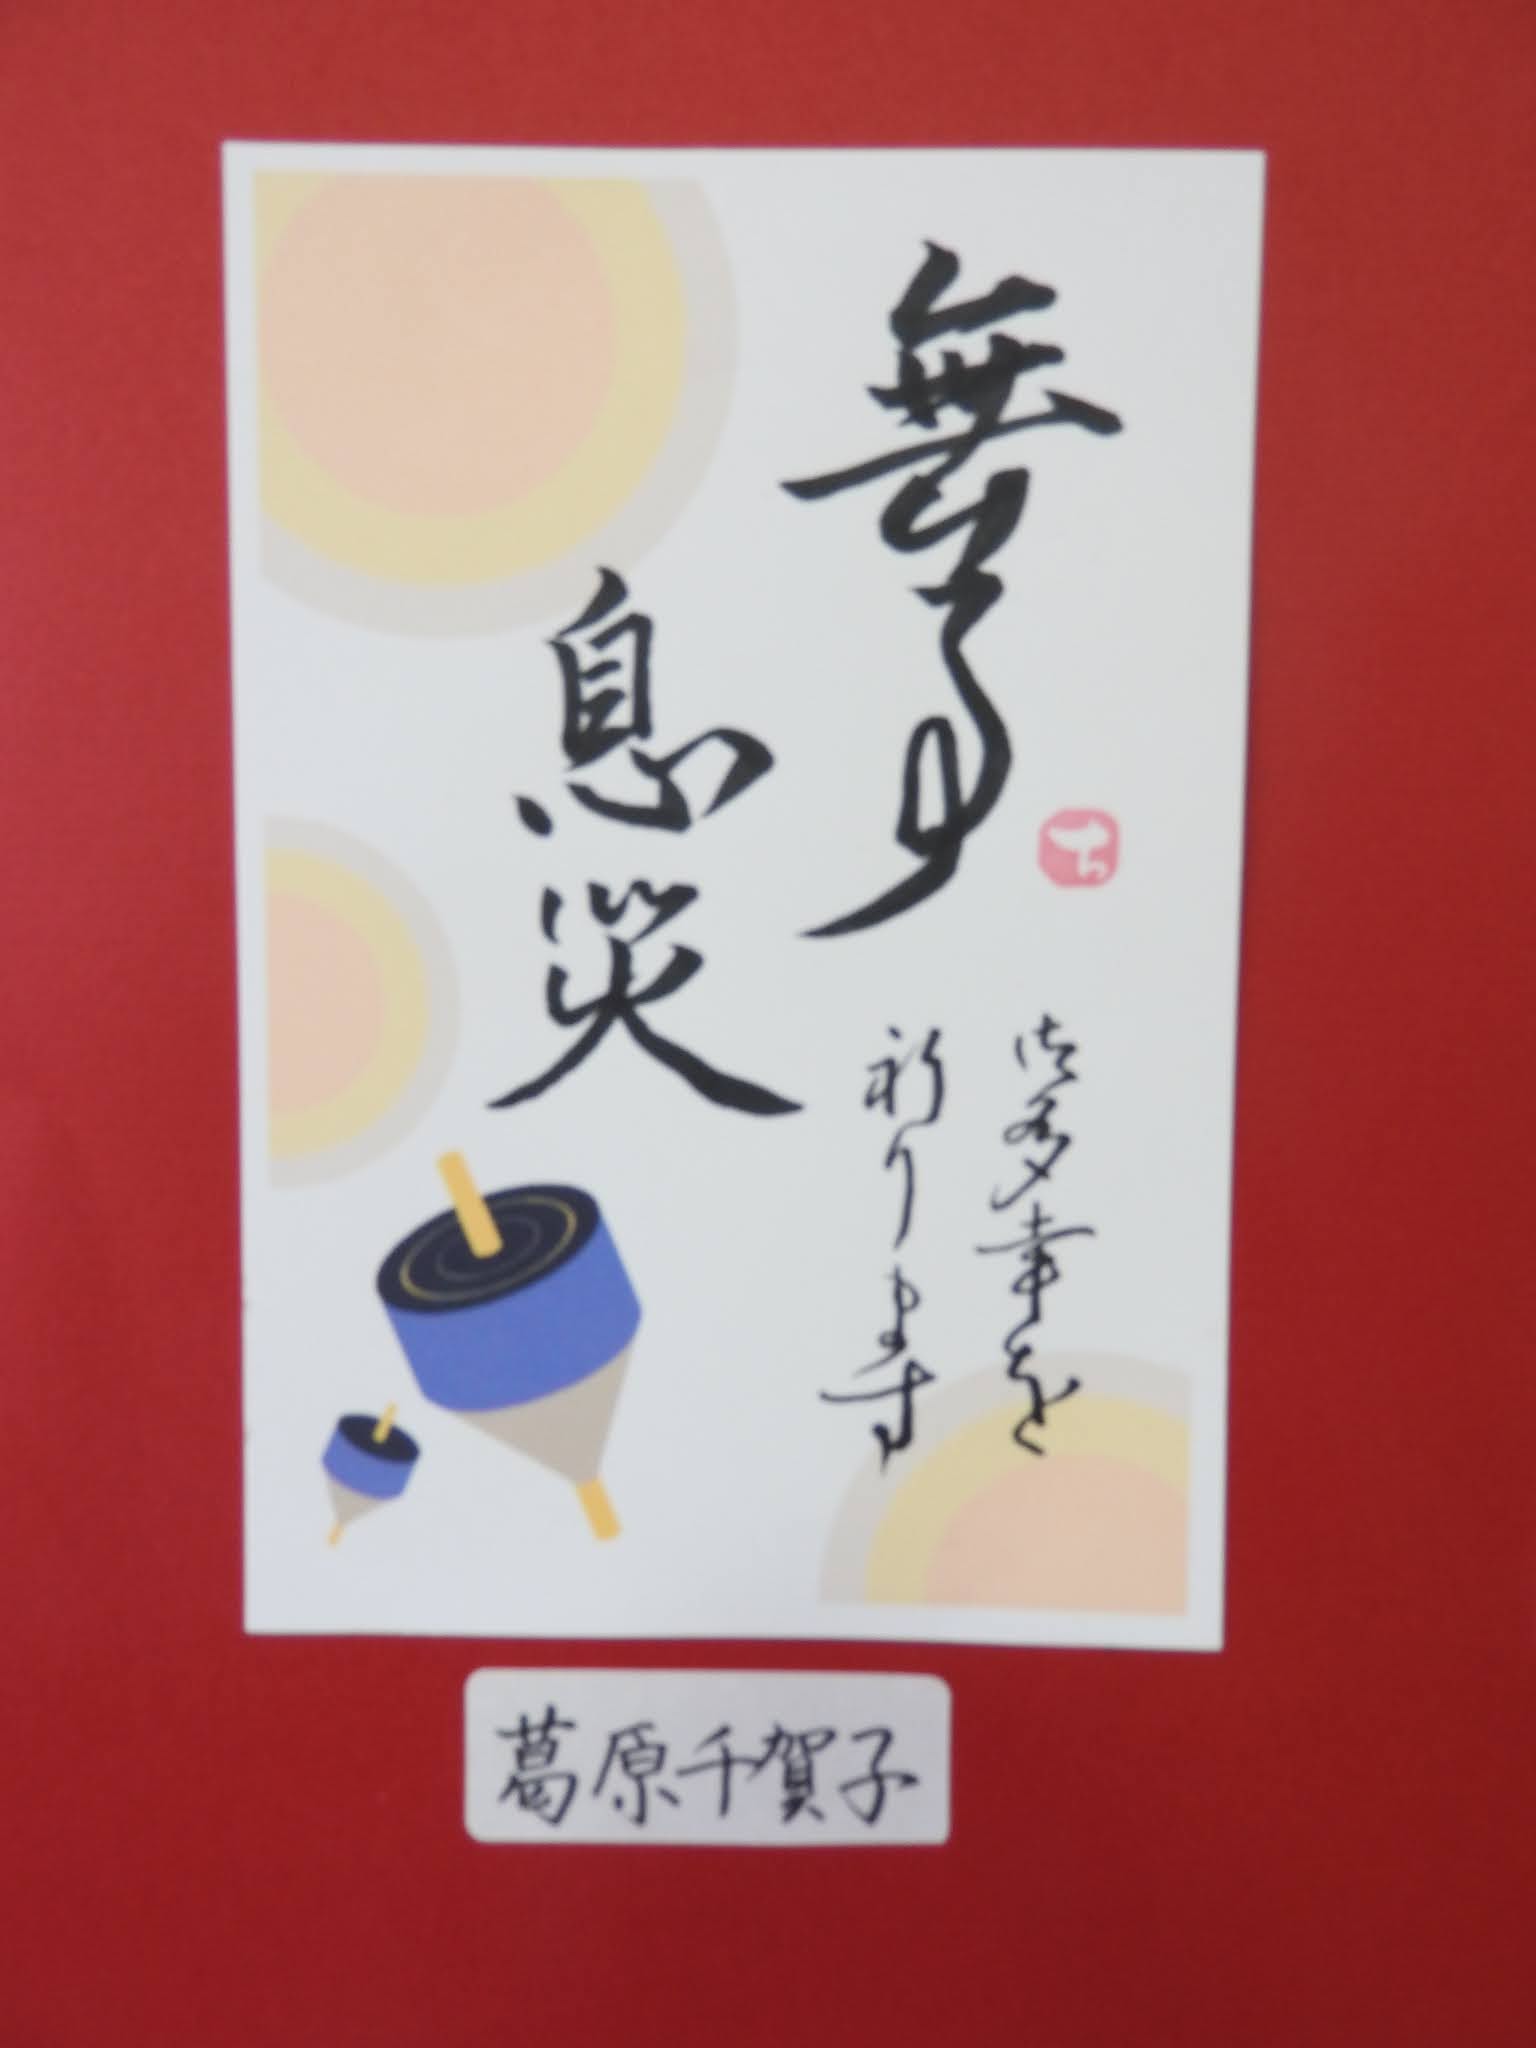 無事
息災
御多幸を
祈ります
ち
葛原千賀子